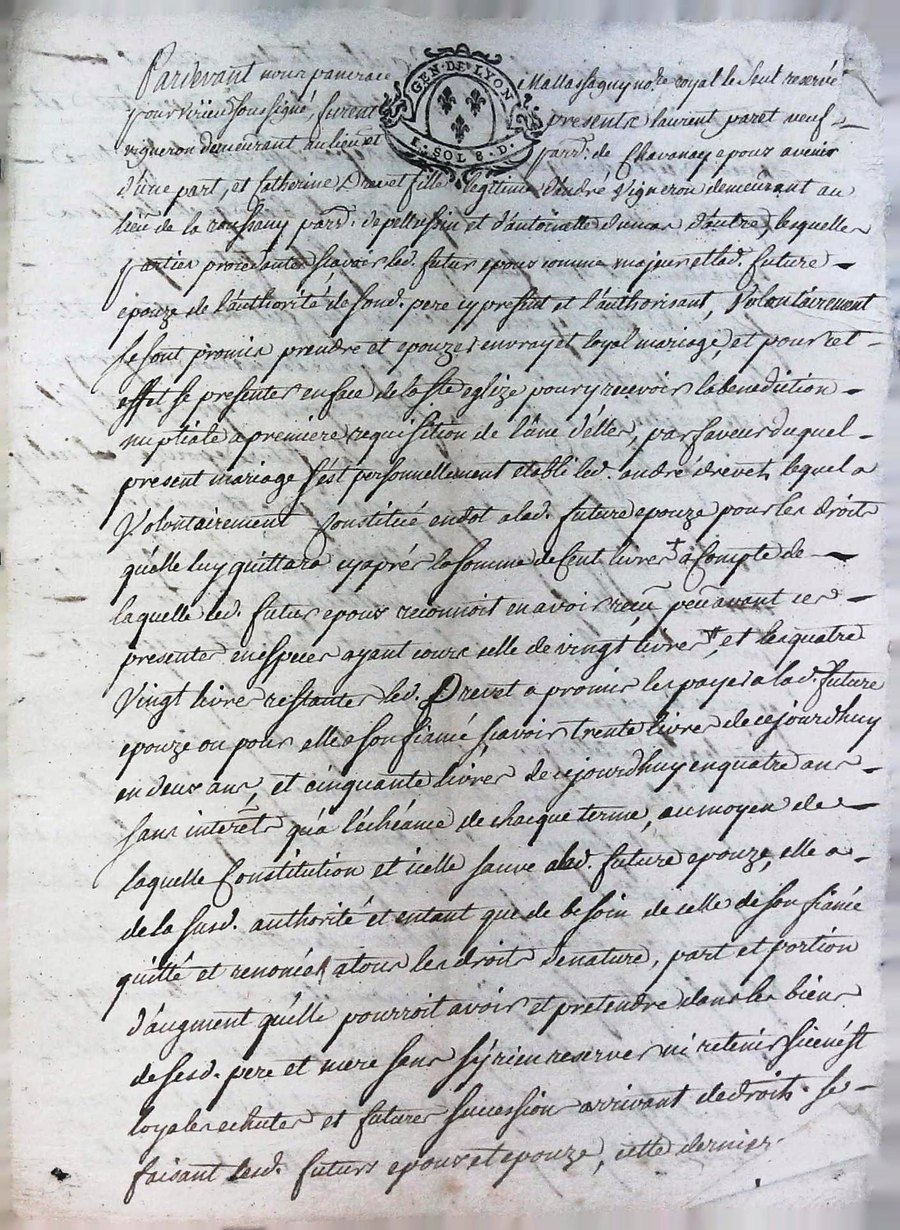 Pardevant nous pancrace Mallassagny no.re royal le seul reservé
GEN·DE·LYON
1·SOL 8·D·
pour virieu soussigné furent presents laurent paret neuf
vigneron demeurant au lieu et parr. de Chavanay epoux avenir
d'une part, et Catherine Drevet fille legitime d'andré vigneron demeurant au
lieu de la parr. de pellussin et d'autre, lesquelles
parties procedantes scavoir led. futur epoux comme majeur et lad. future
epouze de l'authorité de sond. pere cy present et l'authorisant, Volontairement
se sont promis prendre et epouzer en vray et loyal mariage, et pour cet
effet se presenter en face de la Ste eglize pour y recevoir la benediction
nuptiale a premiere requisition de l'une d'elles, par faveur duquel
present mariage s'est personnellement etabli led. andré drevet, lequel a
Volontairement Constitué en dot a lad. future epouze pour les droits
quelle luy quittera cy aprés la somme de Cent livres a Compte de
laquelle led. futur epoux reconnoit en avoir recu peu avant ces
presentes en especes ayant cours celle de vingt livres, et les quatre
Vingt livre restantes led. Drevet a promis les payer a lad. future
epouze ou pour elle a son fiancé, scavoir trente livres de cejourd'huy
en deux ans, et cinquante livres de cejourdhuy en quatre ans
sans interets qu'a l'échéance de chacque terme, au moyen de
laquelle Constitution et icelle sauve a lad. future epouze, elle a
de la susd. authorité et entant que de besoin de celle de son fiancé
quitté et renoncé a tous les droits de nature, part et portion
d'augment qu'elle pourroit avoir et pretendre dans les biens
de sesd. pere et mere sans s'y rien reserver ni retenir si ce n'est
loyales echutes et futures succession arrivant de droit. se
faisant lesd. futurs epoux et epouze, cette derniere